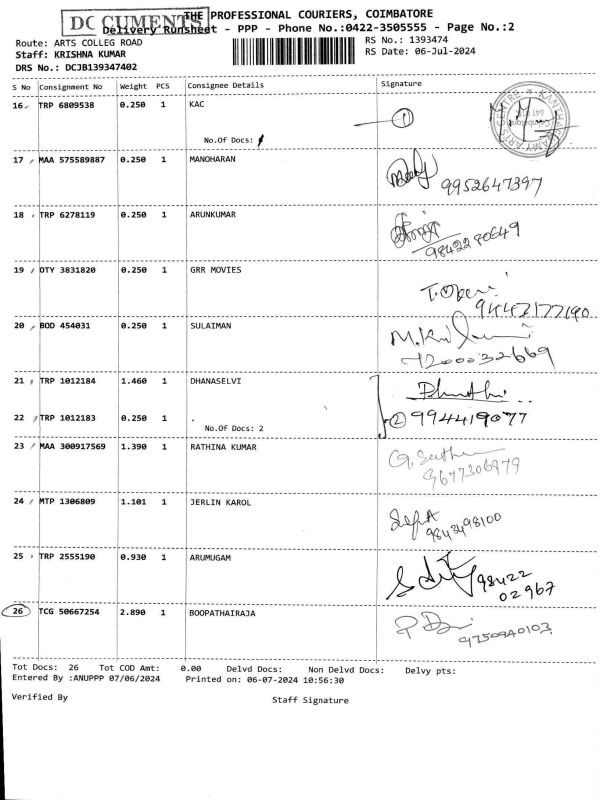 DC CUMENTS THE PROFESSIONAL COURIERS, COIMBATORE
Delivery Runsheet - PPP - Phone No.:0422-3505555 - Page No.:2
Route: ARTS COLLEG ROAD RS No.: 1393474
Staff: KRISHNA KUMAR RS Date: 06-Jul-2024
DRS No.: DCJB139347402
S No Consignment No Weight PCS Consignee Details Signature
16 TRP 6809538 0.250 1 KAC 1
No.Of Docs: 1
17 MAA 575589887 0.250 1 MANOHARAN
9952647397
18 TRP 6278119 0.250 1 ARUNKUMAR
19 OTY 3831820 0.250 1 GRR MOVIES
20 BOD 454031 0.250 1 SULAIMAN
21 TRP 1012184 1.460 1 DHANASELVI
22 TRP 1012183 0.250 1 . 2 9944419077
No.Of Docs: 2
23 MAA 300917569 1.390 1 RATHINA KUMAR
9677306979
24 MTP 1306809 1.101 1 JERLIN KAROL
9843498100
25 TRP 2555190 0.930 1 ARUMUGAM
98422
02967
26 TCG 50667254 2.890 1 BOOPATHAIRAJA
9750940103
Tot Docs: 26 Tot COD Amt: 0.00 Delvd Docs: Non Delvd Docs: Delvy pts:
Entered By :ANUPPP 07/06/2024 Printed on: 06-07-2024 10:56:30
Verified By Staff Signature